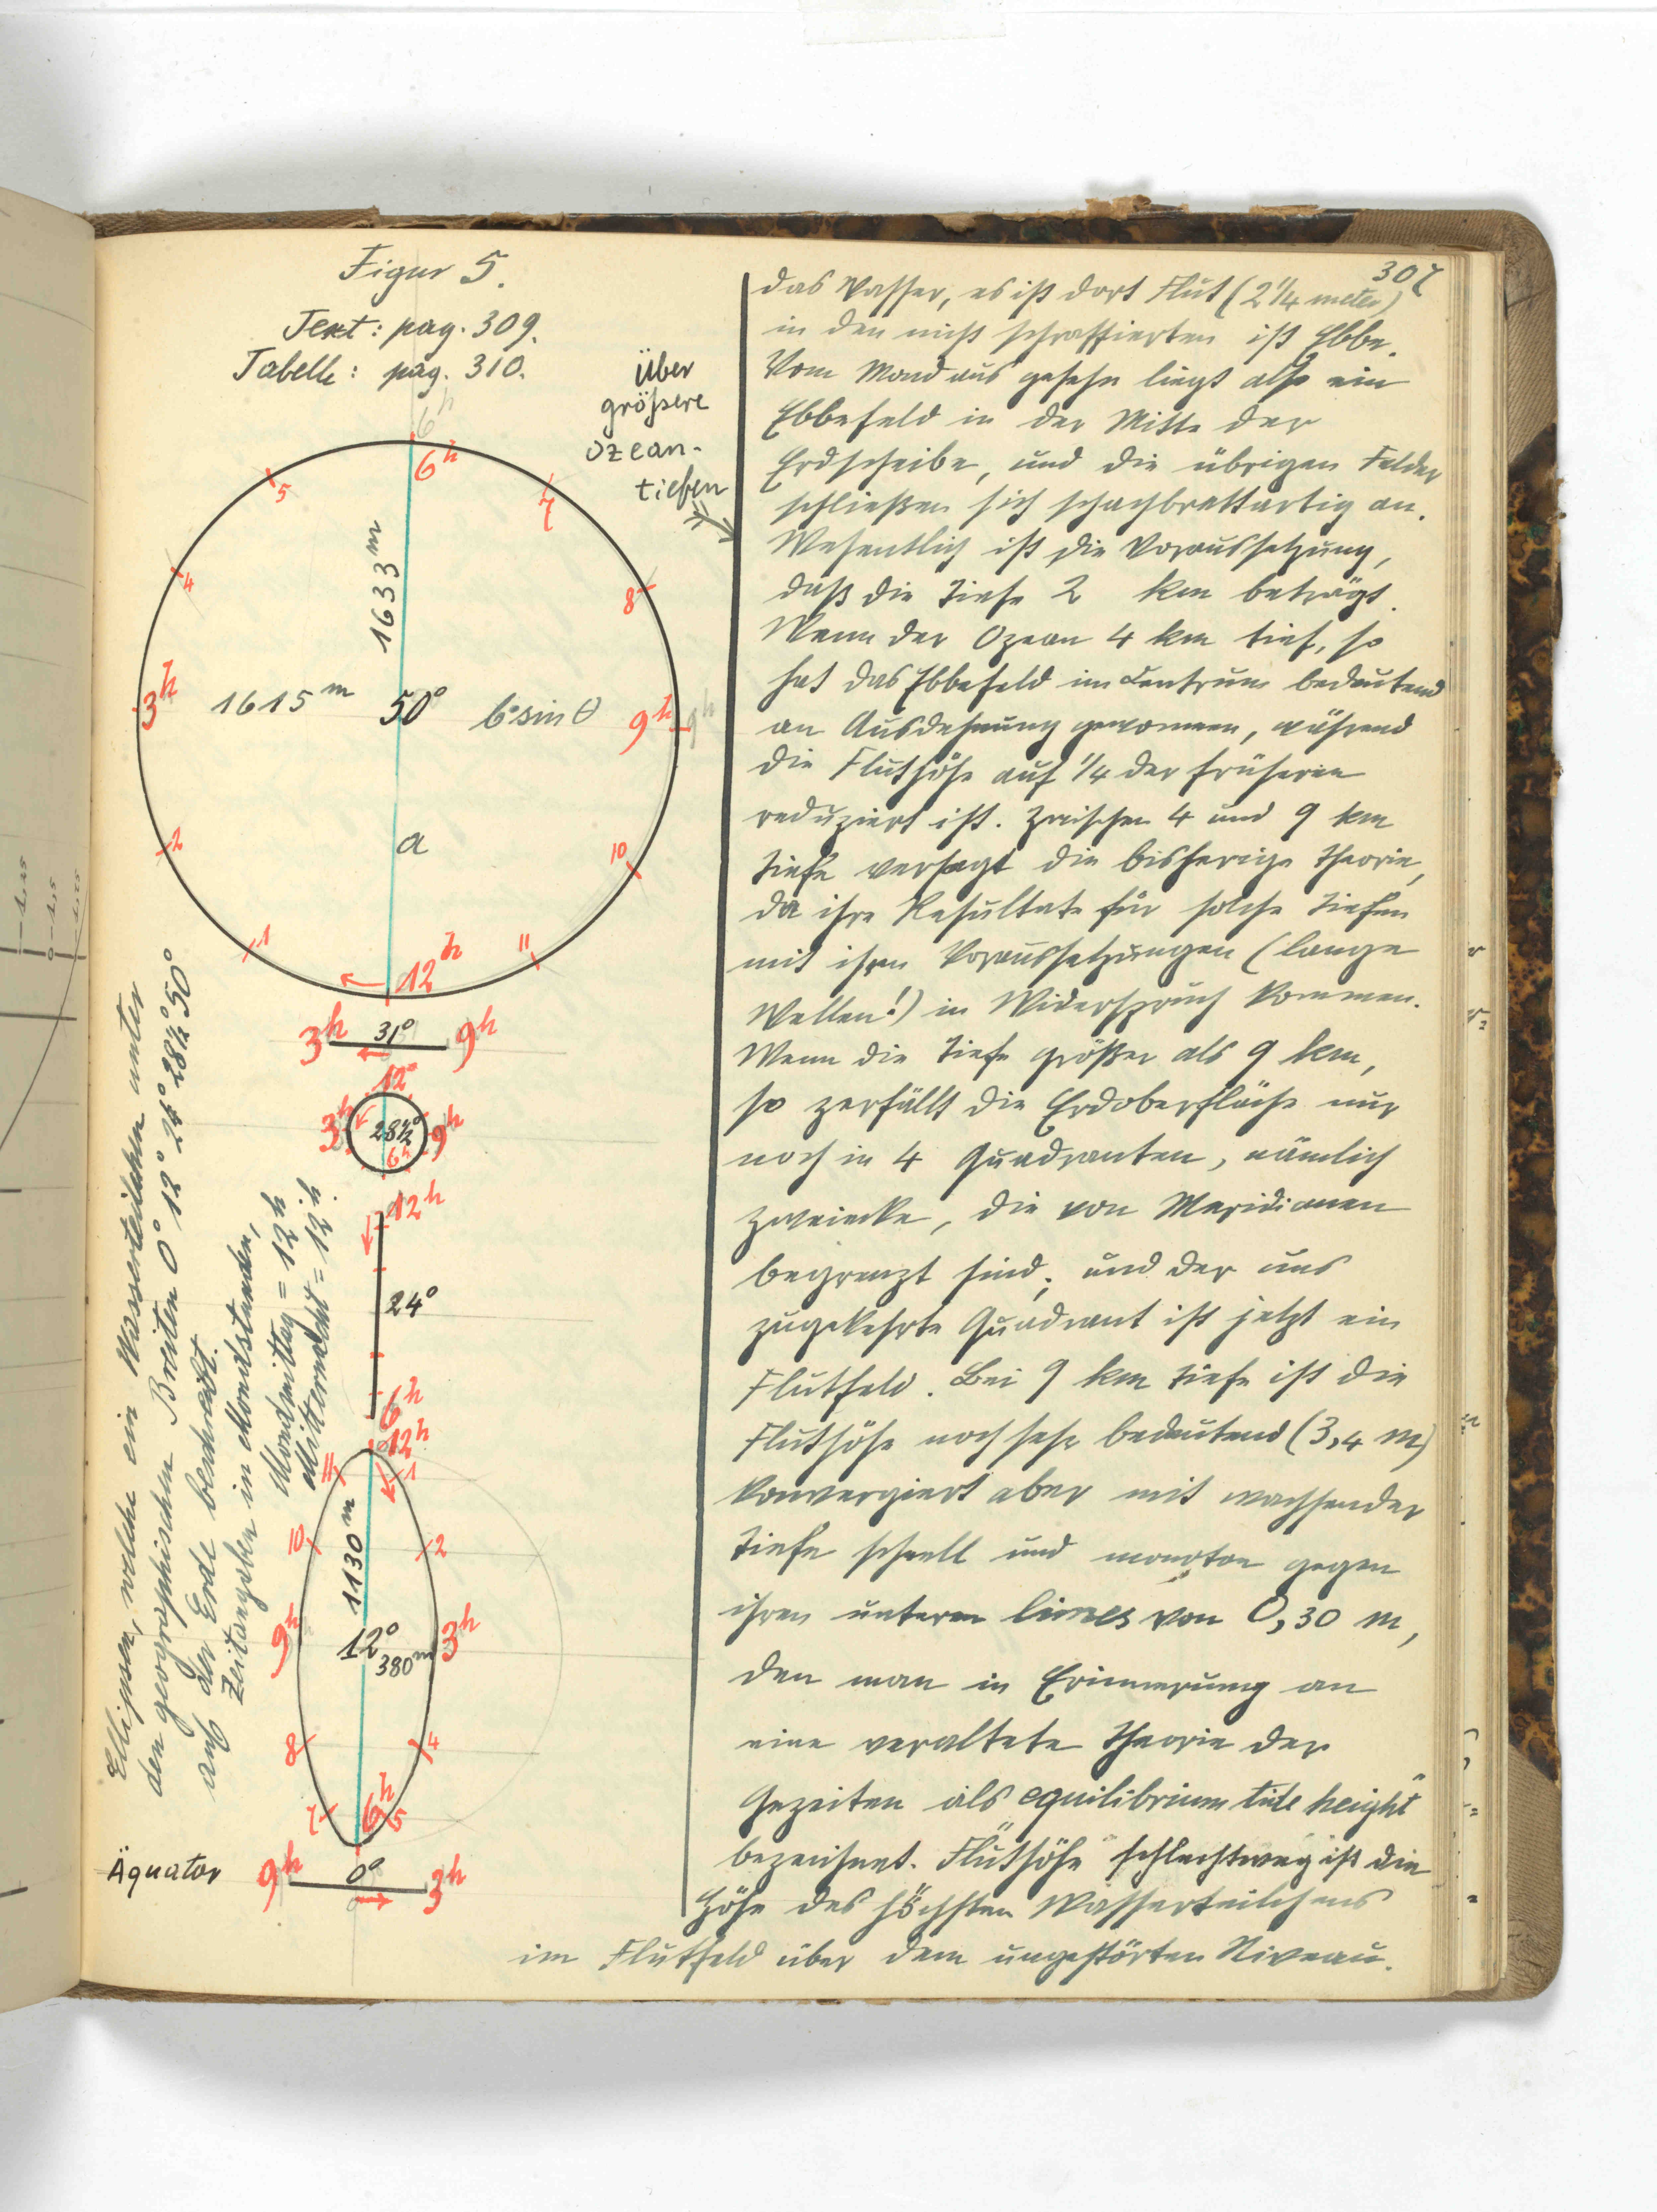 307
Figur 5.
Text: pag. 309.
Tabelle: pag. 310.
Über
größere
ozean-
tiefen
6h
6h
5
7
4
8
1633 m
3h
1615 m
50°
b·sin θ
9h
9h
2
a
10
1
11
12h
3h
31°
9h
12h
3h
28½°
9h
6h
12h
24°
6h
12h
11
1
10
2
1130 m
9h
12°
380 m
3h
8
4
7
6h
5
Äquator
9h
0°
3h
Ellipsen, welche ein Wasserteilchen unter
den geographischen Breiten 0° 12° 24° 28½° 50°
auf der Erde beschreibt.
Zeitangaben in Mondstunden,
Mondmittag = 12h
Mitternacht = 12h.
das Wasser, es ist dort Flut (2 1/4 meter)
in den nicht schraffierten ist Ebbe.
Vom Mond aus gesehn liegt also ein
Ebbefeld in der Mitte der
Erdscheibe, und die übrigen Felder
schließen sich schachbrettartig an.
Wesentlich ist die Voraussetzung,
daß die Tiefe 2 km beträgt.
Wenn der Ozean 4 km tief, so
hat das Ebbefeld im Centrum bedeutend
an Ausdehnung gewonnen, während
die Fluthöhe auf 1/4 der früheren
reduziert ist. Zwischen 4 und 9 km
Tiefe versagt die bisherige Theorie,
da ihre Resultate für solche Tiefen
mit ihren Voraussetzungen (lange
Wellen!) in Widerspruch kommen.
Wenn die Tiefe größer als 9 km,
so zerfällt die Erdoberfläche nur
noch in 4 Quadranten, nämlich
Zweiecke, die von Meridianen
begrenzt sind; und der uns
zugekehrte Quadrant ist jetzt ein
Flutfeld. Bei 9 km Tiefe ist die
Fluthöhe noch sehr bedeutend (3,4 m)
konvergiert aber mit wachsender
Tiefe schnell und monoton gegen
ihren unteren limes von 0,30 m,
den man in Erinnerung an
eine veraltete Theorie der
Gezeiten als equilibrium tide height"
bezeichnet. "Fluthöhe" schlechtweg ist die
Höhe des höchsten Wasserteilchens
im Flutfeld über dem ungestörten Niveau.